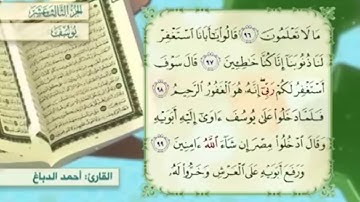 الجزء الثالث عشر
يوسف
مَا لَا تَعْلَمُونَ ٩٦ قَالُوا يَا أَبَانَا اسْتَغْفِرْ
لَنَا ذُنُوبَنَا إِنَّا كُنَّا خَاطِئِينَ ٩٧ قَالَ سَوْفَ
أَسْتَغْفِرُ لَكُمْ رَبِّي إِنَّهُ هُوَ الْغَفُورُ الرَّحِيمُ ٩٨
فَلَمَّا دَخَلُوا عَلَىٰ يُوسُفَ آوَىٰ إِلَيْهِ أَبَوَيْهِ
وَقَالَ ادْخُلُوا مِصْرَ إِن شَاءَ اللَّهُ آمِنِينَ ٩٩
وَرَفَعَ أَبَوَيْهِ عَلَى الْعَرْشِ وَخَرُّوا لَهُ
القارئ: أحمد الدباغ